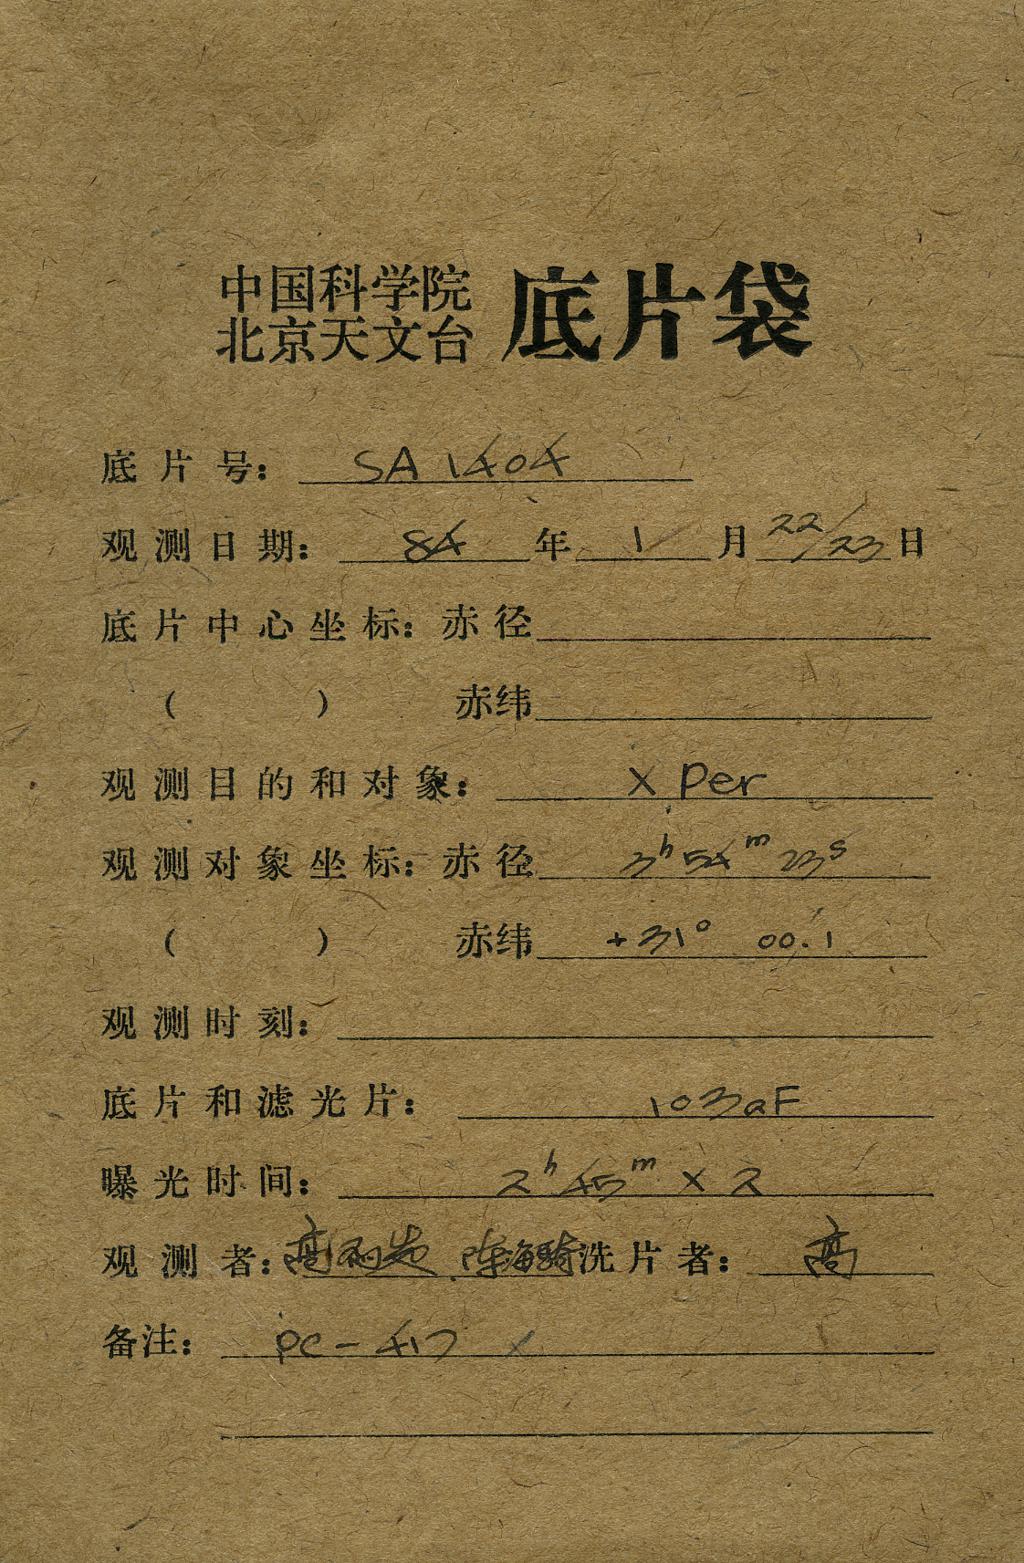 中国科学院
北京天文台 底片袋
底片号： SA 1404
观测日期： 84 年 1 月 22/23 日
底片中心坐标：赤径
（ ） 赤纬
观测目的和对象： X Per
观测对象坐标：赤径 3h 54m 23s
（ ） 赤纬 +31° 00.'1
观测时刻：
底片和滤光片： 103aF
曝光时间： 2h 45m × 2
观测者： 高 陈海骑 洗片者： 高
备注： PC-417